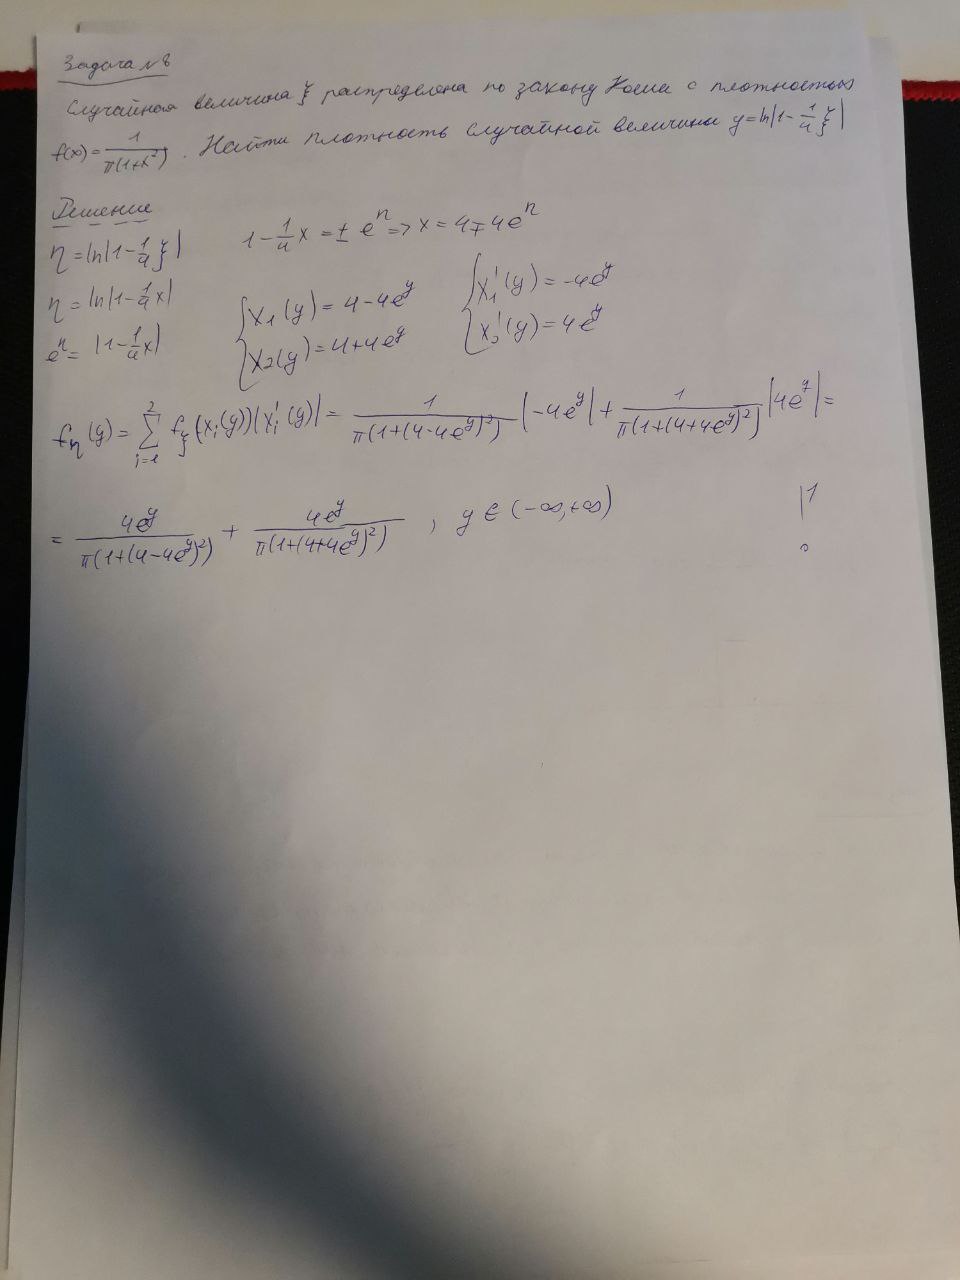 Задача №8
Случайная величина ξ распределена по закону Коши с плотностью
f(x)=1/(π(1+x²)). Найти плотность случайной величины y=ln|1-1/4 ξ|
Решение
η=ln|1-1/4 ξ| 1-1/4 x=± eⁿ=>x=4∓4eⁿ
η=ln|1-1/4 x| {x₁(y)=4-4e^y {x₁'(y)=-4e^y
eⁿ=|1-1/4 x| x₂(y)=4+4e^y x₂'(y)=4e^y
f_η(y)=∑_{i=1}^{2} f_ξ(x_i(y))|x_i'(y)|=1/(π(1+(4-4e^y)²))|-4e^y|+1/(π(1+(4+4e^y)²))|4e^y|=
=4e^y/(π(1+(4-4e^y)²))+4e^y/(π(1+(4+4e^y)²)), y∈(-∞,+∞)